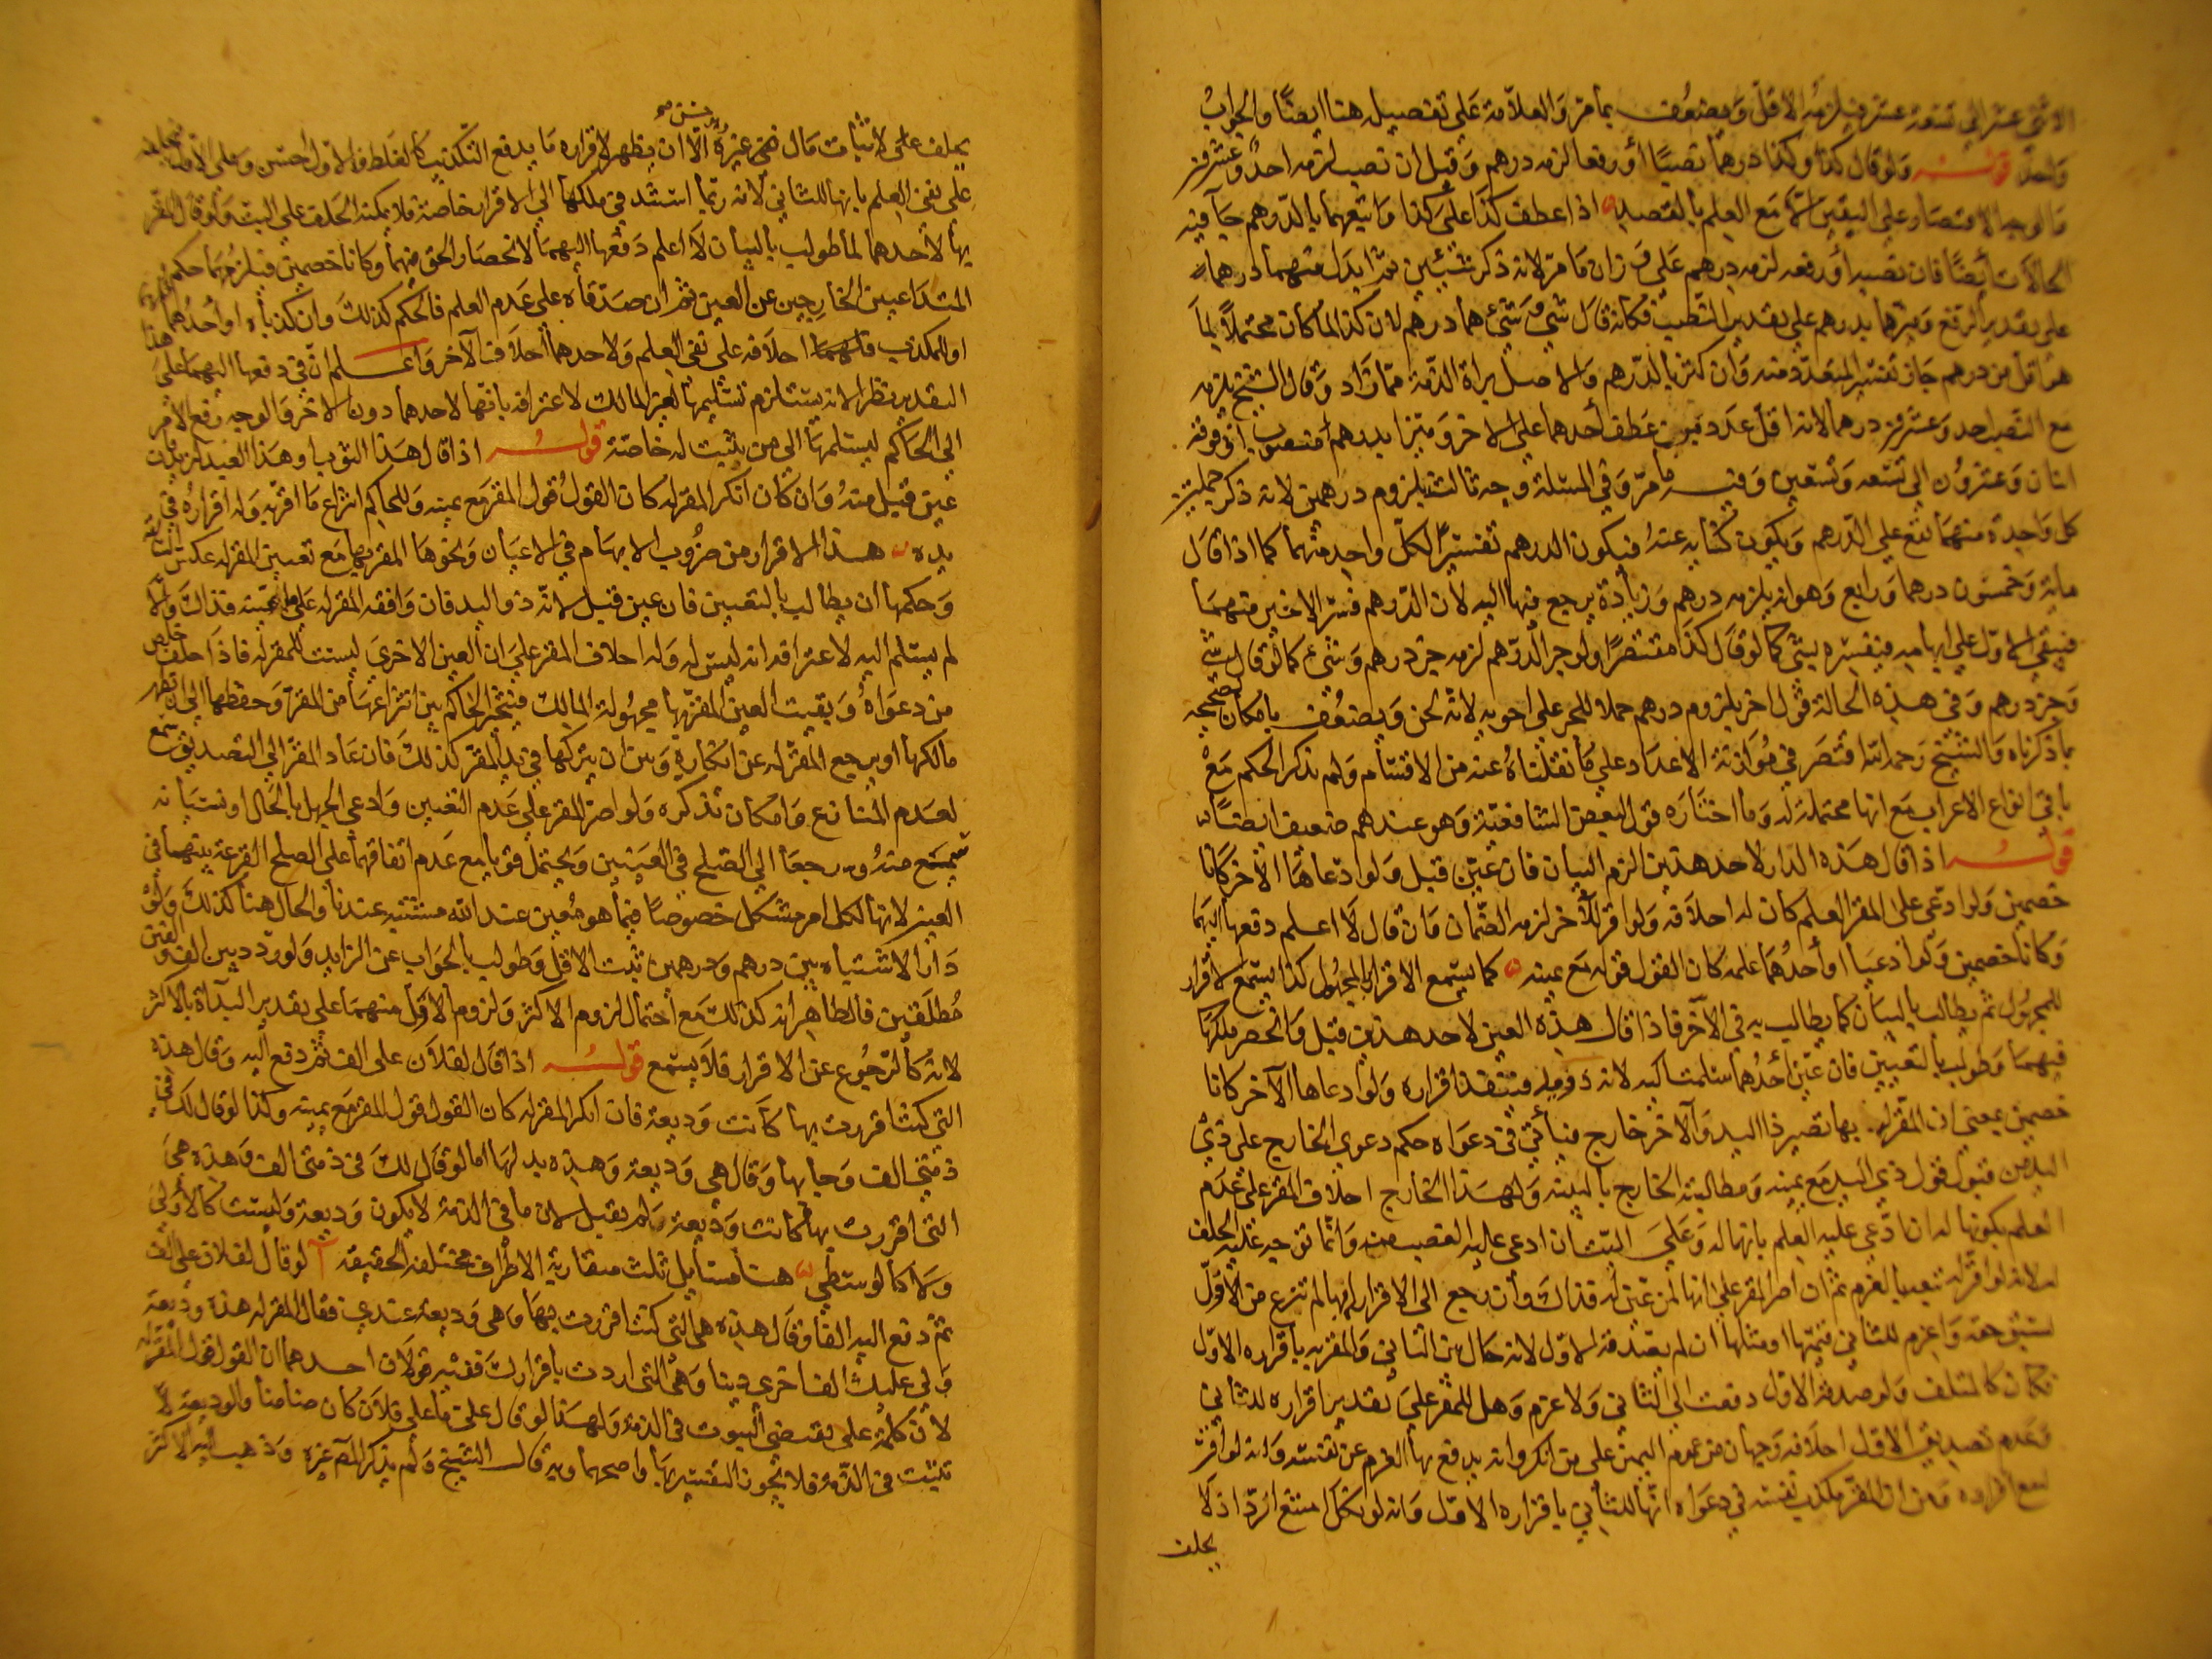 الاثنى عشر الى تسعة عشر فيلزمه الاقل ويضعف بما مر والعلامة على تفصيل هنا ايضا والجواب
واحد قوله ولو قال كذا وكذا درهما نصبا او رفعا لزمه درهم وقيل ان نصب لزمه احد وعشرون
والوجه الاقتصار على اليقين الا مع العلم بالقصد اذا عطف كذا على كذا واتبعهما بالدرهم جا فيه
الحالات ايضا فان نصبه او رفعه لزمه درهم على وزان ما مر لانه ذكر شيئين ثم ابدل منهما درهما
على تقدير الرفع وميزهما بدرهم على تقدير النصب فكانه قال شى وشى هما درهم لان كذا لما كان محتملا لما
هو اقل من درهم جاز تفسير المتعدد منه وان كثر بالدرهم والاصل براة الذمة مما زاد وقال الشيخ يلزمه
مع النصب احد وعشرون درهما لانه اقل عددين عطف احدهما على الاخر وميزا بدرهم منصوب اذ فوقه
اثنان وعشرون الى تسعه وتسعين وفيه ما مر وفي المسئلة وجه ثالث يلزوم درهمين لانه ذكر جملتين
كل واحدة منهما تقع على الدرهم ويكون كناية عنه فيكون الدرهم تفسيرا لكل واحد منهما كما اذا قال
ماية وخمسون درهما ورابع وهو انه يلزمه درهم وزيادة يرجع فيها اليه لان الدرهم فسر الاخير منهما
فيبقى الاول على ابهامه فيفسره بشى كما لو قال كذا مقتصرا ولو جر الدرهم لزمه جزء درهم وشى كما لو قال شى
وجزء درهم وفى هذه الحالة قول اخر يلزوم درهم حملا للجر على اخويه لانه لحن ويضعف بامكان تصحيحه
بما ذكرناه والشيخ رحمه الله اقتصر في موازنة الاعداد على ما نقلناه عنه من الاقسام ولم يذكر الحكم مع
باقى انواع الاعراب مع انها محتملة له وما اختاره قول لبعض الشافعية وهو عندهم ضعيف ايضا
قوله اذا قال هذه الدار لاحد هذين الزم البيان فان عين قبل ولو ادعاها الاخر كانا
خصمين ولو ادعى على المقر العلم كان له احلافه ولو اقر للآخر لزمه الضمان وان قال لا اعلم دفعها اليهما
وكانا خصمين ولو ادعيا او احدهما علمه كان القول قوله مع يمينه كما يسمع الاقرار بالمجهول كذا يسمع الاقرار
للمجهول ثم يطالب بالبيان كما يطالب به فى الآخر فاذا قال هذه العين لاحد هذين قبل وانحصر ملكها
فيهما وطولب بالتعيين فان عين احدهما سلمت اليه لانه ذو يد فينفذ اقراره ولو ادعاها الآخر كانا
خصمين بمعنى ان المقر له بها تصير ذا اليد والآخر خارج فيأتى فى دعواه حكم دعوى الخارج على ذي
اليد من قبول قول ذي اليد مع يمينه ومطالبة الخارج بالبينة ولهذا الخارج احلاف المقر على عدم
العلم بكونها له ان ادعي عليه العلم بانها له وعلى البت ان ادعى عليه الغصب منه وانما توجه عليه الحلف
له لانه لو اقر له تبعها بالغرم ثم ان اصر المقر على انها لمن عين له فذاك وان رجع الى الاقرار بها لم تنزع من الاول
لسبق حقه واغرم للثاني قيمتها او مثلها ان لم يصدقه الاول لانه حال بين الثاني والمقر به باقراره الاول
فكان كالمتلف ولو صدقه الاول دفعت الى الثاني ولا غرم وهل للمقر على تقدير اقراره للثاني
وعدم تصديق الاول احلافه وجهان من عموم اليمين على من انكر وانه يدفع بها الغرم عن نفسه وانه لو اقر
نفع اقراره ومن ان المقر مكذب نفسه في دعواه انها للثاني باقراره الاول وانه لو نكل امتنع الرد اذ لا
يحلف
يحلف على لاثبات مال غيره الا ان يظهر لاقراره ما يدفع التكذيب كالغلط والاول احسن
على نفى العلم بانها للثاني لانه ربما استند في ملكها الى الاقرار خاصة فلا يمكنه الحلف على البت ولو قال المقر
بها لاحدهما لما طولب بالبيان لا اعلم دفعها اليهما لانحصار الحق فيهما وكانا خصمين فيلزمهما حكم
المتداعيين الخارجين عن العين ثم ان صدقاه على عدم العلم فالحكم كذلك وان كذباه او احدهما
او المكذب احلافه على نفى العلم ولاحدهما احلاف الآخر واعلم ان في دفعها اليهما على هذا
التقدير نظرا لانه يستلزم تسليمها لغير المالك لاعترافه بانها لاحدهما دون الاخر والوجه رفع الامر
الى الحاكم ليسلمها الى من يثبت له خاصة قوله اذا قال هذا الثوب او هذا العبد لزيد فان
عين قبل منه وان كان انكر المقر له كان القول قول المقر مع يمينه وللحاكم انتزاع ما اقر به وله اقراره في
يده هذا الاقرار من ضروب الابهام في الاعيان ونحوها المقر بها مع تعيين المقر له عكس السابقة
وحكمها ان يطالب بالتعيين فان عين قبل لانه ذو اليد فان وافقه المقر له على ما عينه فذاك والا
لم يسلم اليه لاعترافه انه ليس له وله احلاف المقر على ان العين الاخرى ليست للمقر له فاذا حلف خلص
من دعواه وبقيت العين المقر بها مجهولة المالك فيتخير الحاكم بين انتزاعها من المقر وحفظها الى ان يظهر
مالكها او يرجع المقر له عن انكاره وبين ان يتركها في يد المقر كذلك فان عاد المقر له الى التصديق سمع
لعدم المنازع وامكان تذكره ولو اصر المقر على عدم التعيين وادعى الجهل بالحال او نسيانه
سمع منه ورجعا الى الصلح فى العينين ويحتمل قويا مع عدم اتفاقهما على الصلح القرعة بينهما في
العين لانها لكل امر مشكل خصوصا فيما هو معين عند الله مشتبه عندنا والحال هنا كذلك ولو
دار الاشتباه بين درهم ودرهمين ثبت الاقل وطولب بالجواب عن الزايد ولو ردد بين الف والفين
مطلقين فالظاهر انه كذلك مع احتمال لزوم الاكثر ولزوم الاول منهما على تقدير البدأة بالاكثر
لانه كالرجوع عن الاقرار فلا يسمع قوله اذا قال لفلان على الف ثم دفع اليه وقال هذه
التى كنت اقررت بها كانت وديعة فان انكر المقر له كان القول قول المقر مع يمينه وكذا لو قال لك في
ذمتى الف وجا بها وقال هى وديعة وهذه بدلها اما لو قال لك فى ذمتى الف وهذه هى
التى اقررت بها كانت وديعة لم يقبل لان ما فى الذمة لا يكون وديعة وليست كالاولى
ولا كالوسطى هنا مسايل ثلث متقاربة الاطراف مختلفة الحقيقة آ لو قال لفلان على الف
ثم دفع اليه الفا وقال هذه هى التى كنت اقررت بها وهى وديعة عندي فقال المقر له هذه وديعة
ولى عليك الف اخرى دينا وهى التى اردت باقرارك ففيه قولان احدهما ان القول قول المقر له
لان كلمة على يقتضي الثبوت فى الذمة ولهذا لو قال على ما على فلان كان ضامنا والوديعة لا
تثبت فى الذمة فلا يجوز التفسير بها واصحهما وبه قال الشيخ ولم يذكر المص غيره وذهب اليه الاكثر